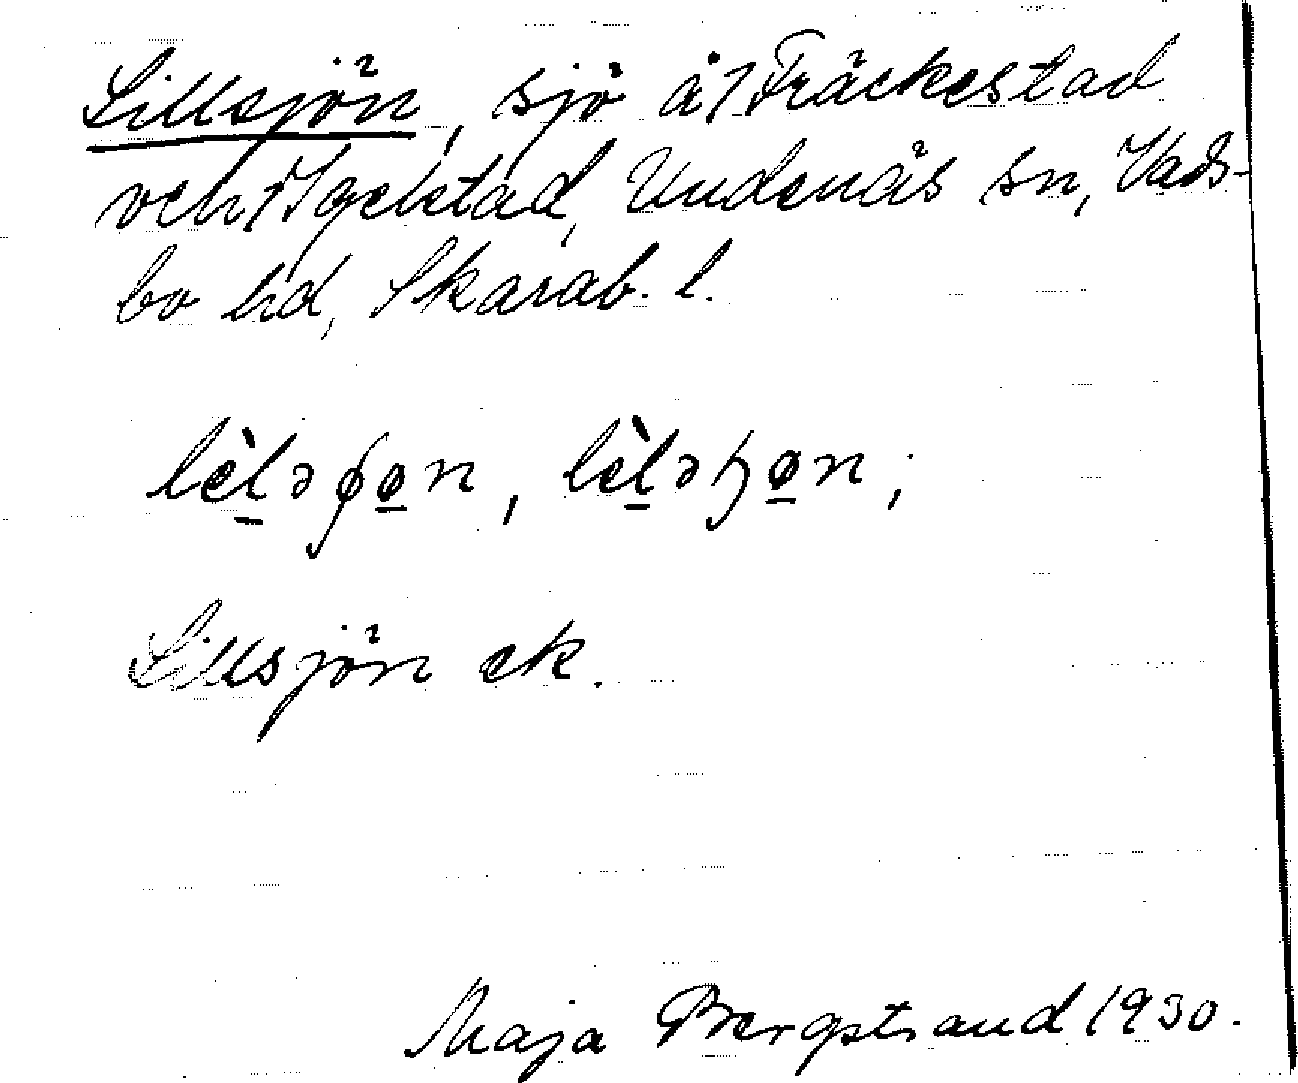 Lillsjön, sjö å 1 Fräckestad
och 1 Igelstad, Undenäs sn, Vads-
bo hd, Skarab. l.
lèləɸøn, lèləɧøn;
Lillsjön ek.
Maja Bergstrand 1930.